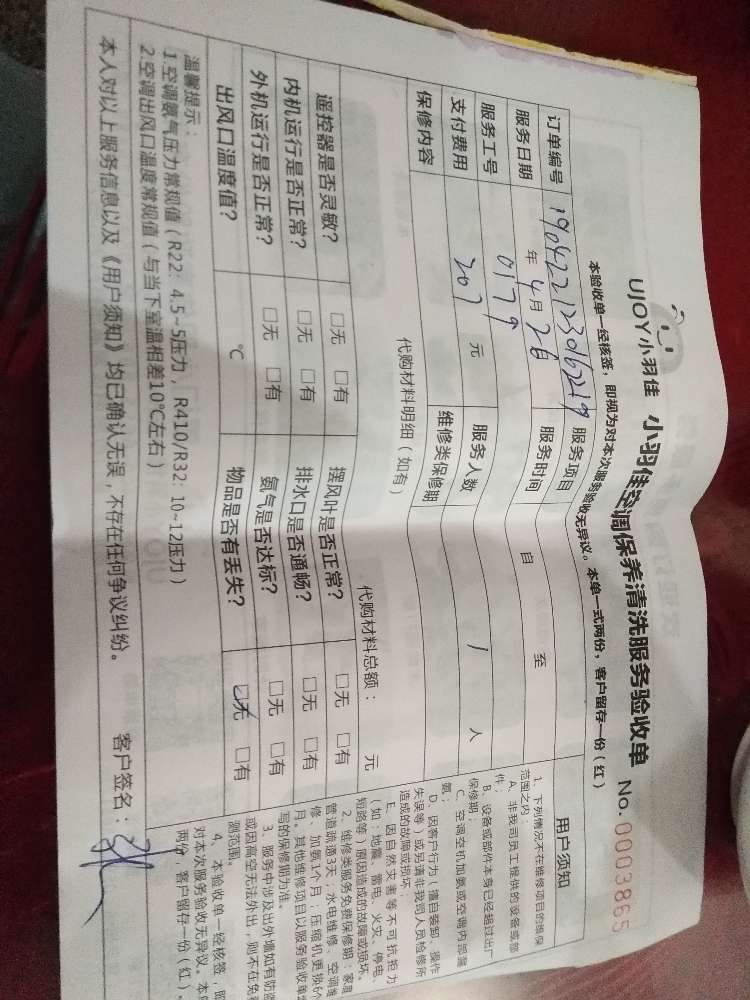 UJOY小羽佳 小羽佳空调保养清洗服务验收单 No.0003865
本验收单一经核签，即视为对本次服务验收无异议。本单一式两份，客户留存一份（红）
订单编号 服务项目
服务日期 年 4月 26日 服务时间 自 至
服务工号 0179 服务人数 1 人
支付费用 207 元 维修类保修期
保修内容
代购材料明细（如有） 代购材料总额： 元
遥控器是否灵敏？ □无 □有 摆风叶是否正常？ □无 □有
内机运行是否正常？ □无 □有 排水口是否通畅？ □无 □有
外机运行是否正常？ □无 □有 氨气是否达标？ □无 □有
出风口温度值？ ℃ 物品是否有丢失？ ☑无 □有
温馨提示：
1.空调氨气压力常规值（R22：4.5~5压力，R410/R32：10~12压力）
2.空调出风口温度常规值（与当下室温相差10℃左右）
本人对以上服务信息以及《用户须知》均已确认无误，不存在任何争议纠纷。 客户签名：
用户须知
1、下列情况不在维修项目的维保
范围之内：
A、非我司员工提供的设备或部
件；
B、设备或部件本身已经超过出厂
保修期；
C、空调空机加氨或空调内部漏
氨；
D、因客户行为（擅自装卸、操作
失误等）或另请非我司人员检修所
造成的故障或损坏；
E、因自然灾害等不可抗拒力
（如：地震、雷电、火灾、停电、
短路等）原因造成的故障或损坏。
2、维修类服务免费保修期：家庭
管道疏通3天；水电维修、空调维
修、加氨1个月；压缩机更换6个
月。其他维修项目以服务验收单
写的保修期为准。
3、服务中涉及出外墙如有防盗
或因高空无法外出，则不在免
测范围。
4、本验收单一经核签，即
对本次服务验收无异议。本
两份，客户留存一份（红）。